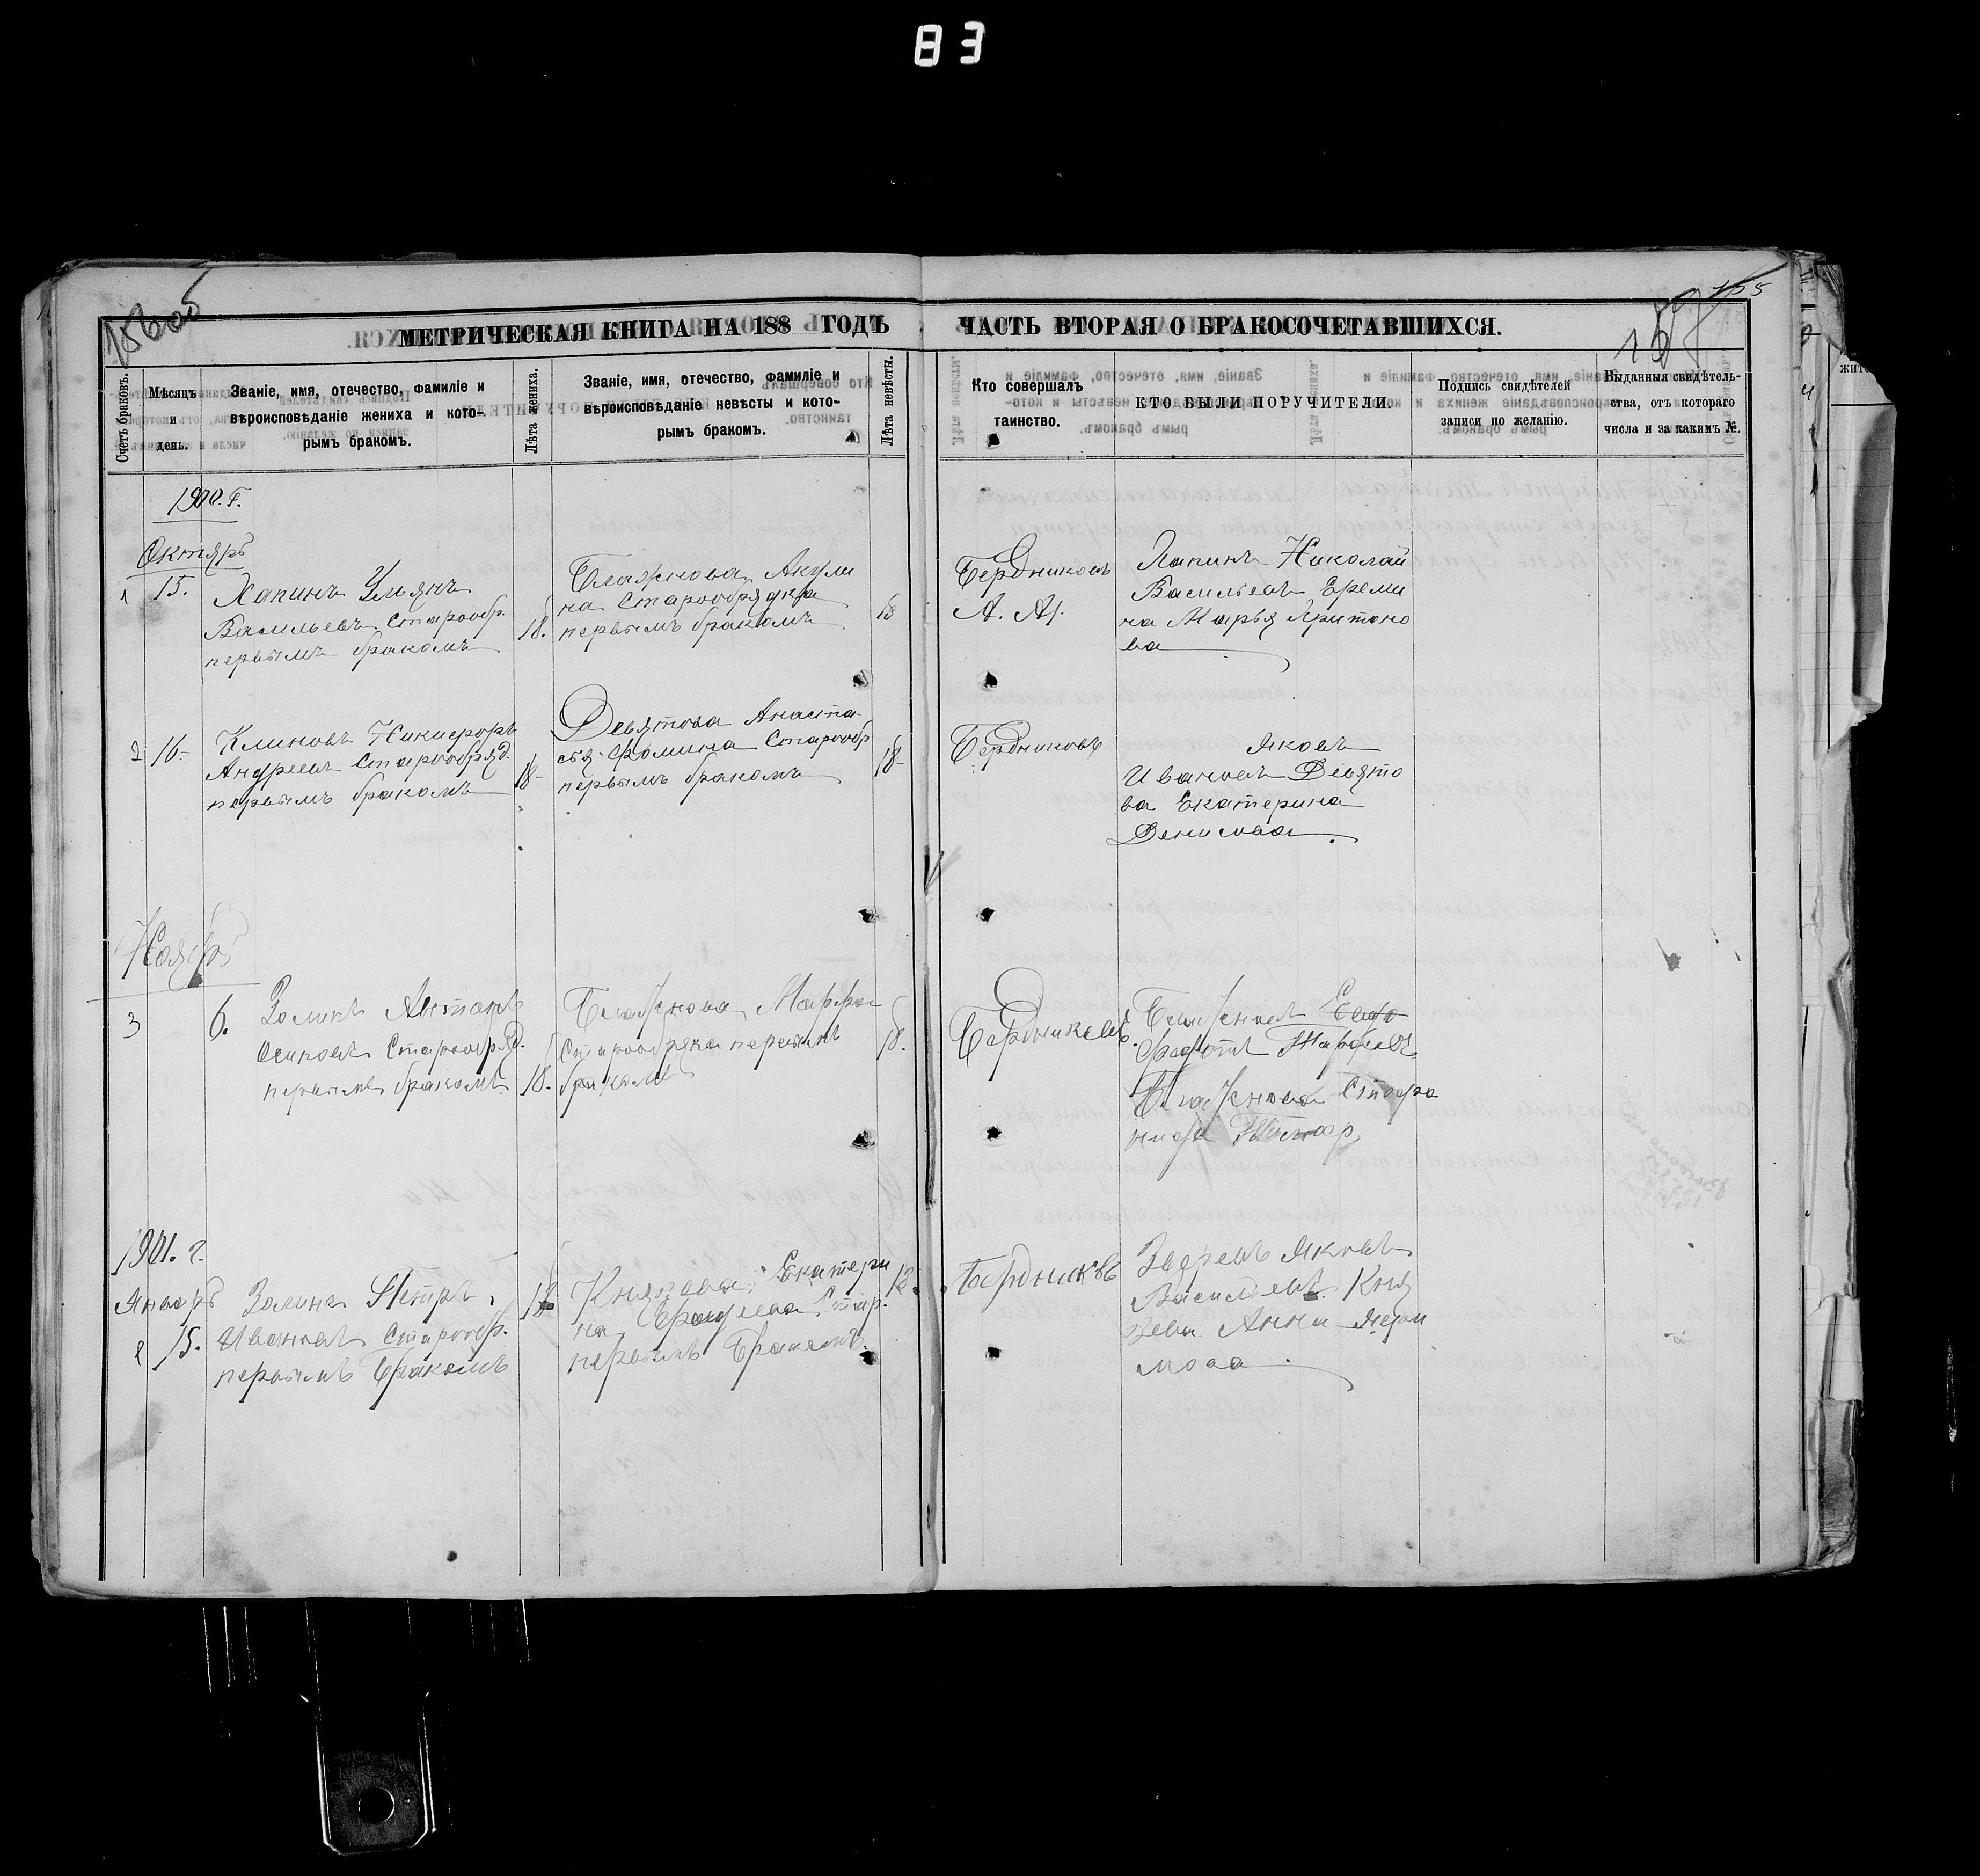 83
156 об
155
МЕТРИЧЕСКАЯ КНИГА НА 188 ГОДЪ
ЧАСТЬ ВТОРАЯ О БРАКОСОЧЕТАВШИХСЯ.
Счетъ браковъ.
Мѣсяцъ
и
день.
Званіе, имя, отечество, фамиліе и
вѣроисповѣданіе жениха и кото-
рымъ бракомъ.
Лѣта жениха.
Званіе, имя, отечество, фамиліе и
вѣроисповѣданіе невѣсты и кото-
рымъ бракомъ.
Лѣта невѣсты.
Кто совершалъ
таинство.
КТО БЫЛИ ПОРУЧИТЕЛИ.
Подпись свидѣтелей
записи по желанію.
Выданныя свидѣтель-
ства, отъ котораго
числа и за какимъ №.
1900. Г.
Октябрь
1
15.
Хапинъ Ульянъ
Васильевъ Старообр.
первымъ бракомъ
18.
Блажнова Акули
на Старообрядка
первымъ бракомъ
18
Бердниковъ
А. А.
Лапинъ Николай
Васильевъ Ереми
на Марья Аритоно
ва
2
16
Климовъ Никифоръ
Андреевъ Старообряд.
первымъ бракомъ
18
Девятова Анаста
сья Фомина Старообр
первымъ бракомъ
18
Бердниковъ
Яковъ
Ивановъ Девято
ва Екатерина
Денисова
Ноябрь
3
6.
Золинъ Антонъ
Осиповъ Старообряд.
первымъ бракомъ
18.
Блажнова Марфа
Старообрдка первымъ
бракомъ
18.
Бердниковъ.
Блажновъ
Блажнова
1901. г.
Январь
15.
Золинъ Петръ
Ивановъ Старообр.
первымъ бракомъ
18
Князева Екатери
на Стар.
первымъ бракомъ.
18.
Бердниковъ
Зверевъ Яковъ
Васильевъ. Кня
зева Анна